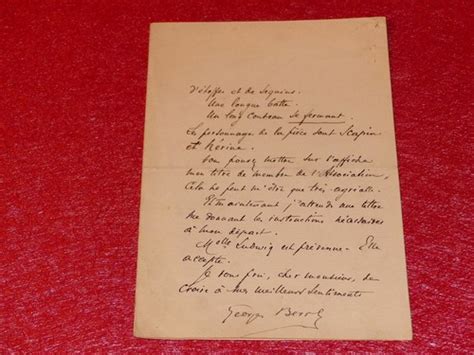 d'étoffes et de sequins.
Une longue batte.
Un long couteau se fermant.
Les personnages de la pièce sont Scapin
et Nérine.
Vous pourrez mettre sur l'affiche
mon titre de membre de l'Association,
cela ne peut m'être que très agréable.
Et maintenant j'attends une lettre
me donnant les instructions nécessaires
à mon départ.
Melle Ludwig est prévenue - Elle
accepte.
Je vous prie, cher monsieur, de
croire à mes meilleurs sentiments
Georges Berr